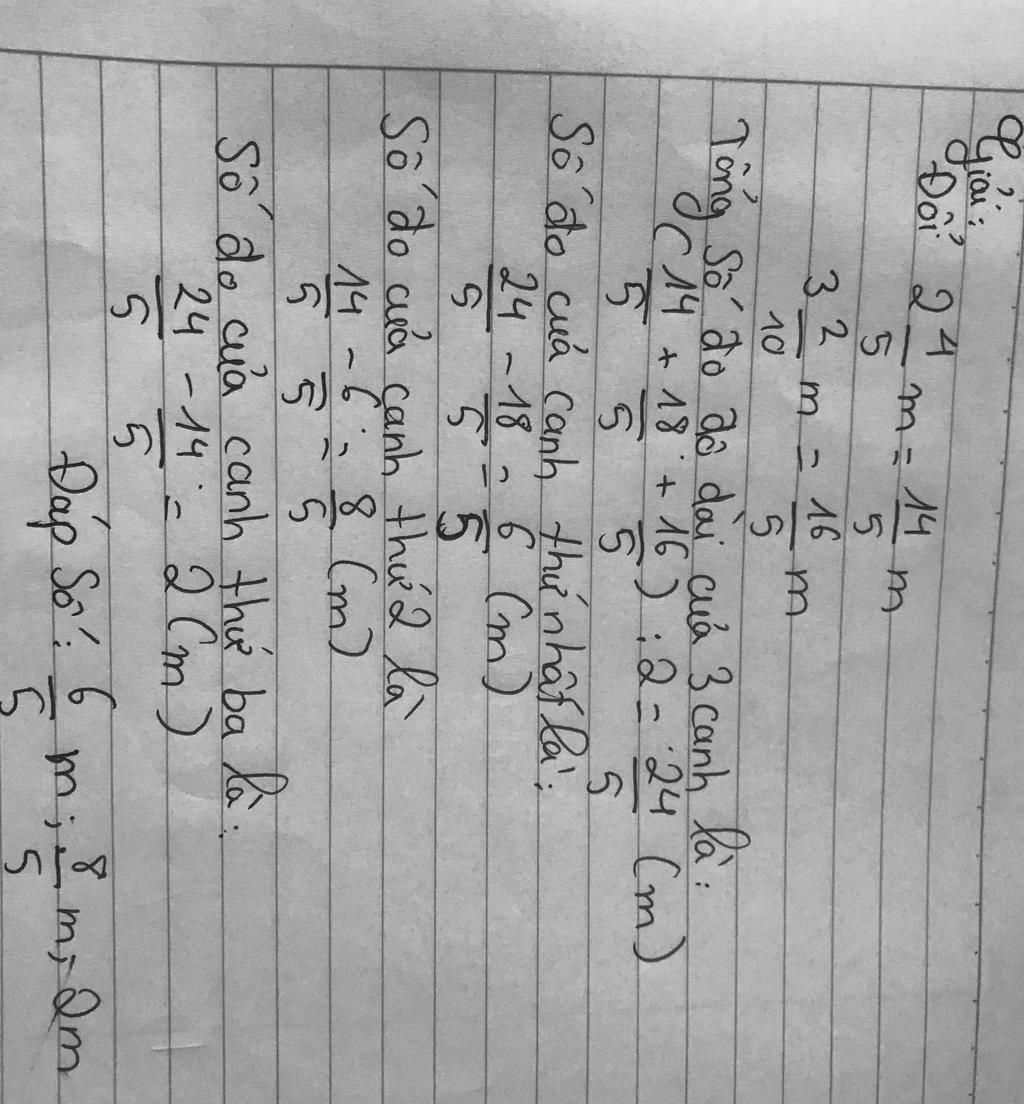 Giải:
Đổi 2 4/5 m = 14/5 m
3 2/10 m = 16/5 m
Tổng số đo độ dài của 3 canh là:
(14/5 + 18/5 + 16/5) : 2 = 24/5 (m)
Số đo của canh thứ nhất là:
24/5 - 18/5 = 6/5 (m)
Số đo của canh thứ 2 là
14/5 - 6/5 = 8/5 (m)
Số đo của canh thứ ba là:
24/5 - 14/5 = 2 (m)
Đáp số: 6/5 m; 8/5 m; 2m